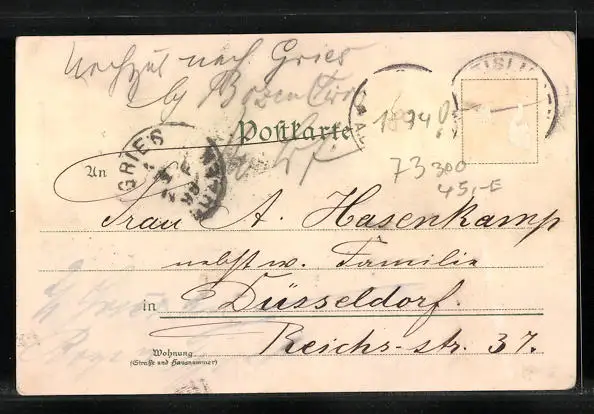 nach Gries
by Bozen
Postkarte
1894
GRIES
73300
45,-E
An
Frau A. Hasenkamp
nebst w. Familie
in Düsseldorf.
Reichs-str. 37.
Wohnung
(Straße und Hausnummer)